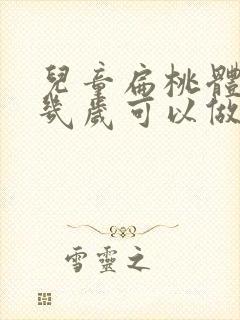 兒童扁桃體
幾歲可以做
雪靈之